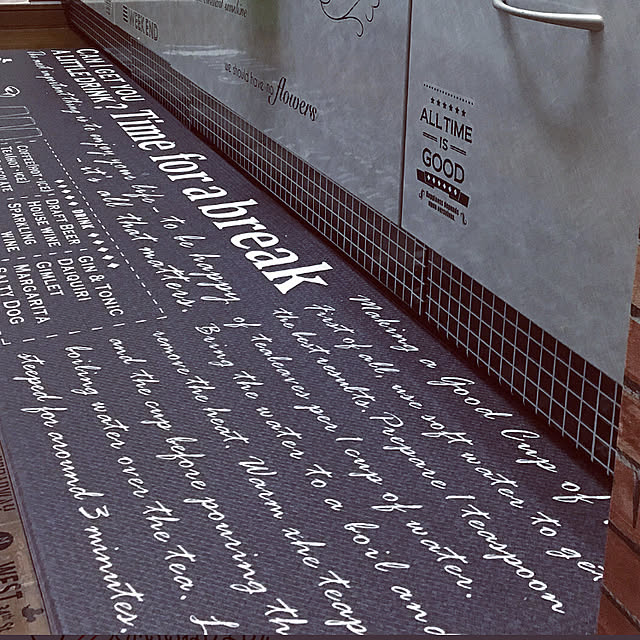 WEEK END
we should have no flowers
ALL TIME
IS
GOOD
CAN I GET YOU
A LITTLE DRINK?
Time for a break
The most important thing is to enjoy your life - to be happy
- it's all that matters.
DRINK
COFFEE(HOT/ICE) | DRAFT BEER | GIN & TONIC |
TEA(HOT/ICE) | HOUSE WINE | DAIQUIRI |
SPARKLING | GIMLET |
WINE | MARGARITA |
SALTY DOG
Making a Good Cup of
First of all, use soft water to get
the best results. Prepare 1 teaspoon
of tealeaves per 1 cup of water.
Bring the water to a boil and
remove the heat. Warm the teap
and the cup before pouring th
boiling water over the tea. L
steeped for around 3 minutes.
WEST